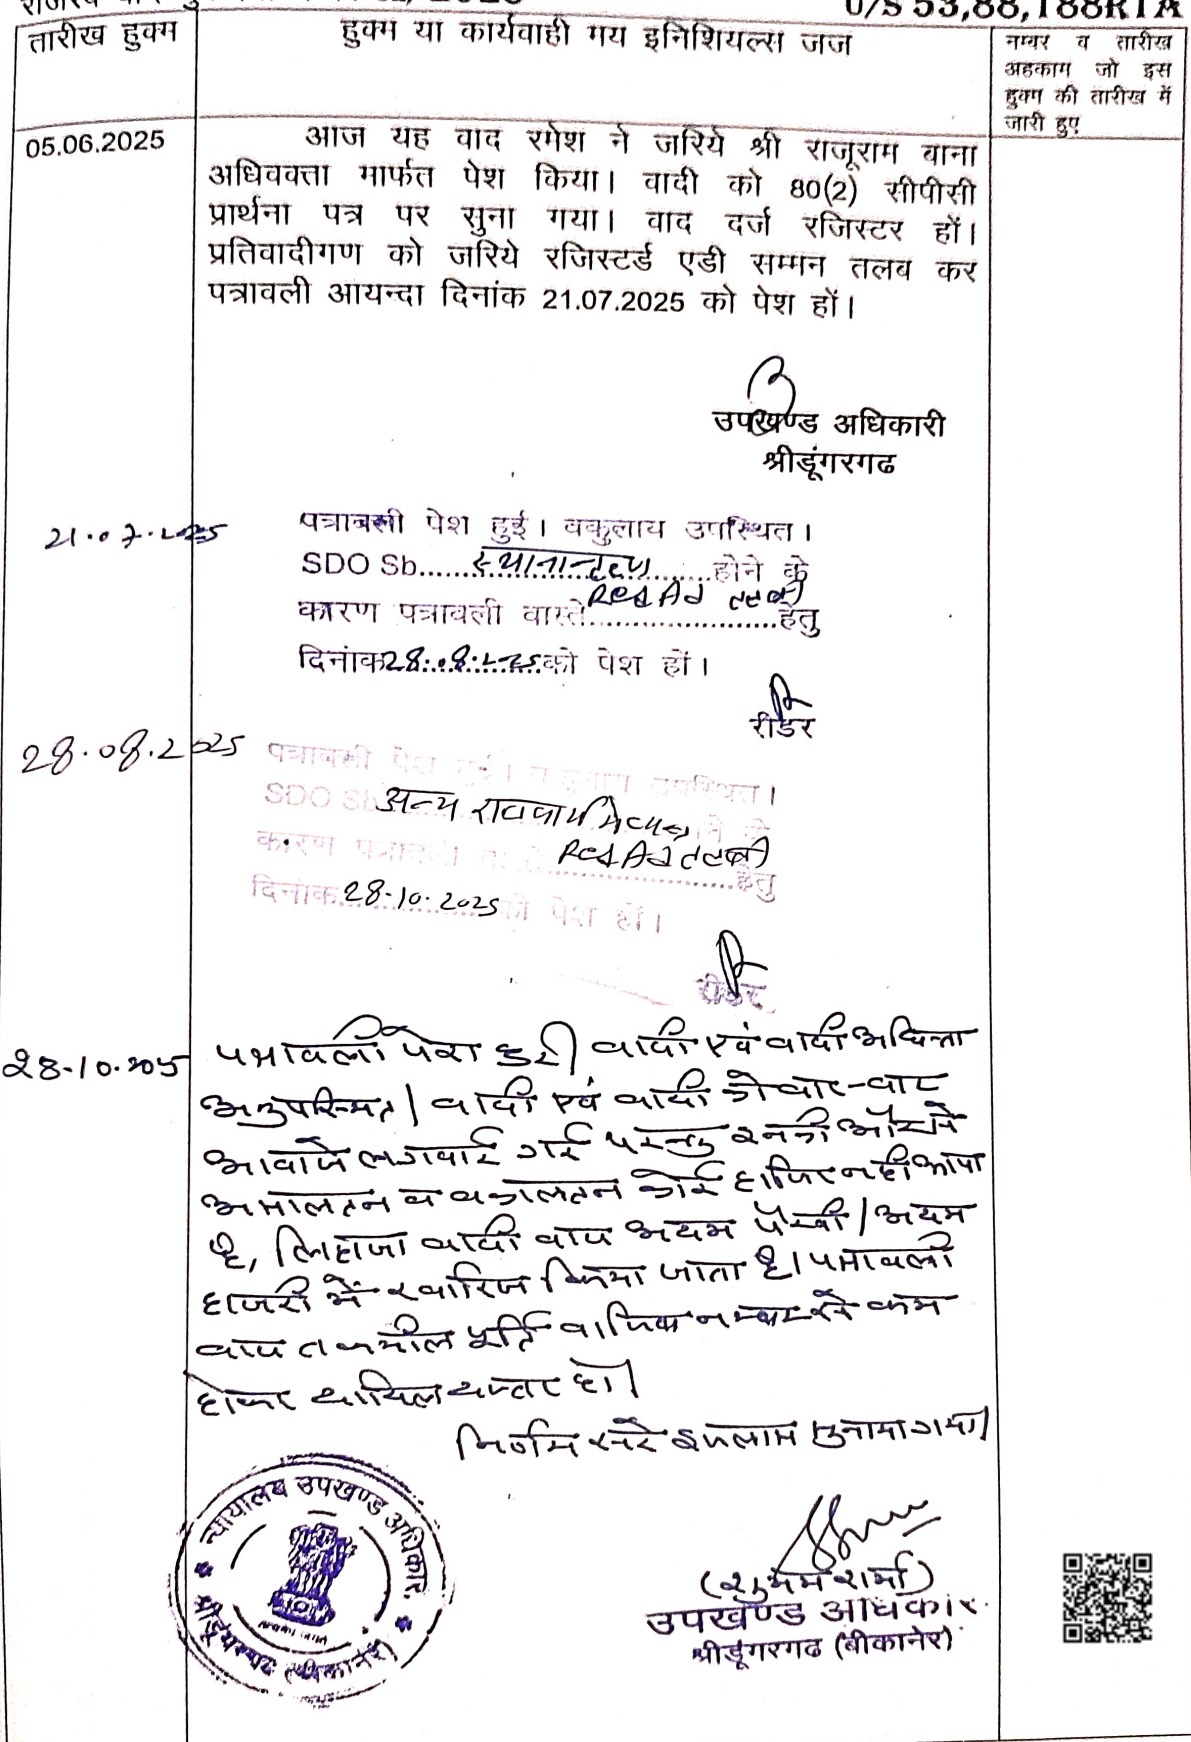 U/S 53,88,188RTA
तारीख हुक्म
हुक्म या कार्यवाही मय इनिशियल्स जज
नम्बर व तारीख
अहकाम जो इस
हुक्म की तारीख में
जारी हुए
05.06.2025
आज यह वाद रमेश ने जरिये श्री राजूराम बाना
अधिवक्ता मार्फत पेश किया। वादी को 80(2) सीपीसी
प्रार्थना पत्र पर सुना गया। वाद दर्ज रजिस्टर हों।
प्रतिवादीगण को जरिये रजिस्टर्ड एडी सम्मन तलब कर
पत्रावली आयन्दा दिनांक 21.07.2025 को पेश हों।
उपखण्ड अधिकारी
श्रीडूंगरगढ
21.07.2025
पत्रावली पेश हुई। वकुलाय उपस्थित।
SDO Sb......स्थानान्तरण......होने के
कारण पत्रावली वास्ते Red AD तलबी......हेतु
दिनांक 28.08.2025 को पेश हों।
रीडर
28.08.2025
पत्रावली पेश हुई। वकुलाय उपस्थित।
SDO Sb अन्य राजकार्य में व्यस्त होने के
कारण पत्रावली वास्ते Red AD तलबी......हेतु
दिनांक 28.10.2025 को पेश हों।
रीडर
28.10.2025
पत्रावली पेश हुई। वादी एवं वादी अधिवक्ता
अनुपस्थित। वादी एवं वादी को बार-बार
आवाजे लगवाई गई परन्तु इनकी ओर से
असालतन व वकालतन कोई हाजिर नहीं आया
है, लिहाजा वादी वाद अदम पैरवी / अदम
हाजरी में खारिज किया जाता है। पत्रावली
बाद तकमील पूर्ति दाखिल नम्बर से कम
होकर दाखिल दफ्तर हो।
निर्णय सरे इजलास सुनाया गया।
न्यायालय उपखण्ड अधिकारी
श्रीडूंगरगढ (बीकानेर)
(शुभम शर्मा)
उपखण्ड अधिकारी
श्रीडूंगरगढ (बीकानेर)